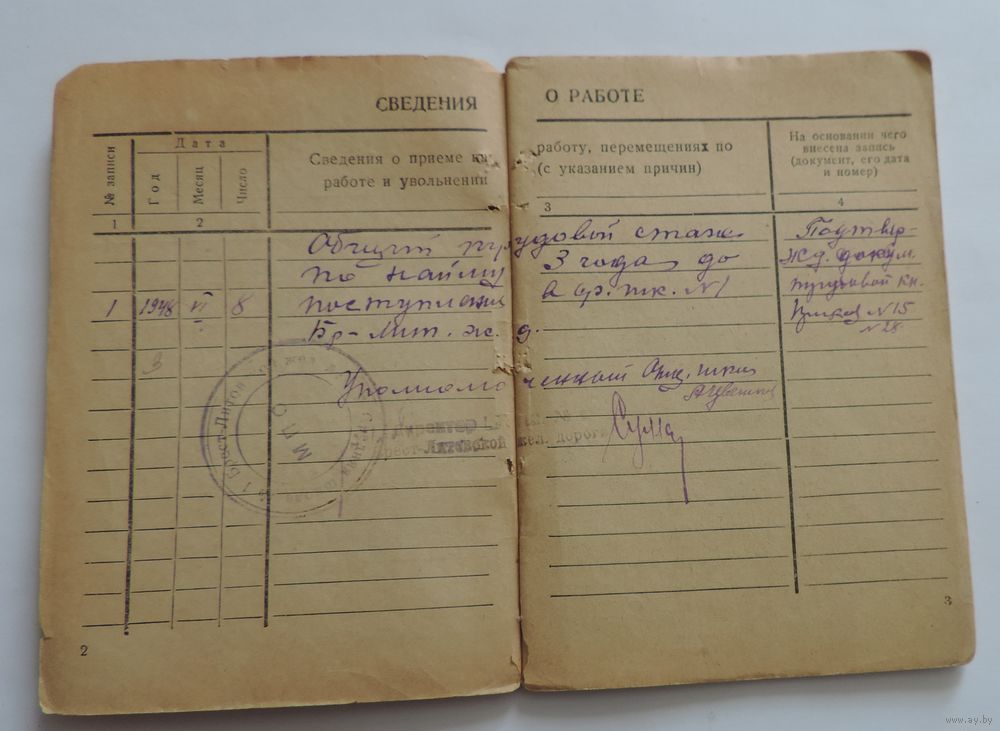 СВЕДЕНИЯ О РАБОТЕ
№ записи
Дата
Год
Месяц
Число
Сведения о приеме на работу, перемещениях по
работе и увольнении (с указанием причин)
На основании чего
внесена запись
(документ, его дата
и номер)
1 2 3 4
Общий трудовой стаж
по найму 3 года до
1 1948 VI 8 поступления в ср. шк. №1
Бр-Лит. ж. д.
Подтвер-
жд. докум.
трудовой кн.
№15
№28
3
Уполномоченный
Директор
Брест-Литовской жел. дороги
МПС
Брест-Литов
средняя
2
3
www.ay.by